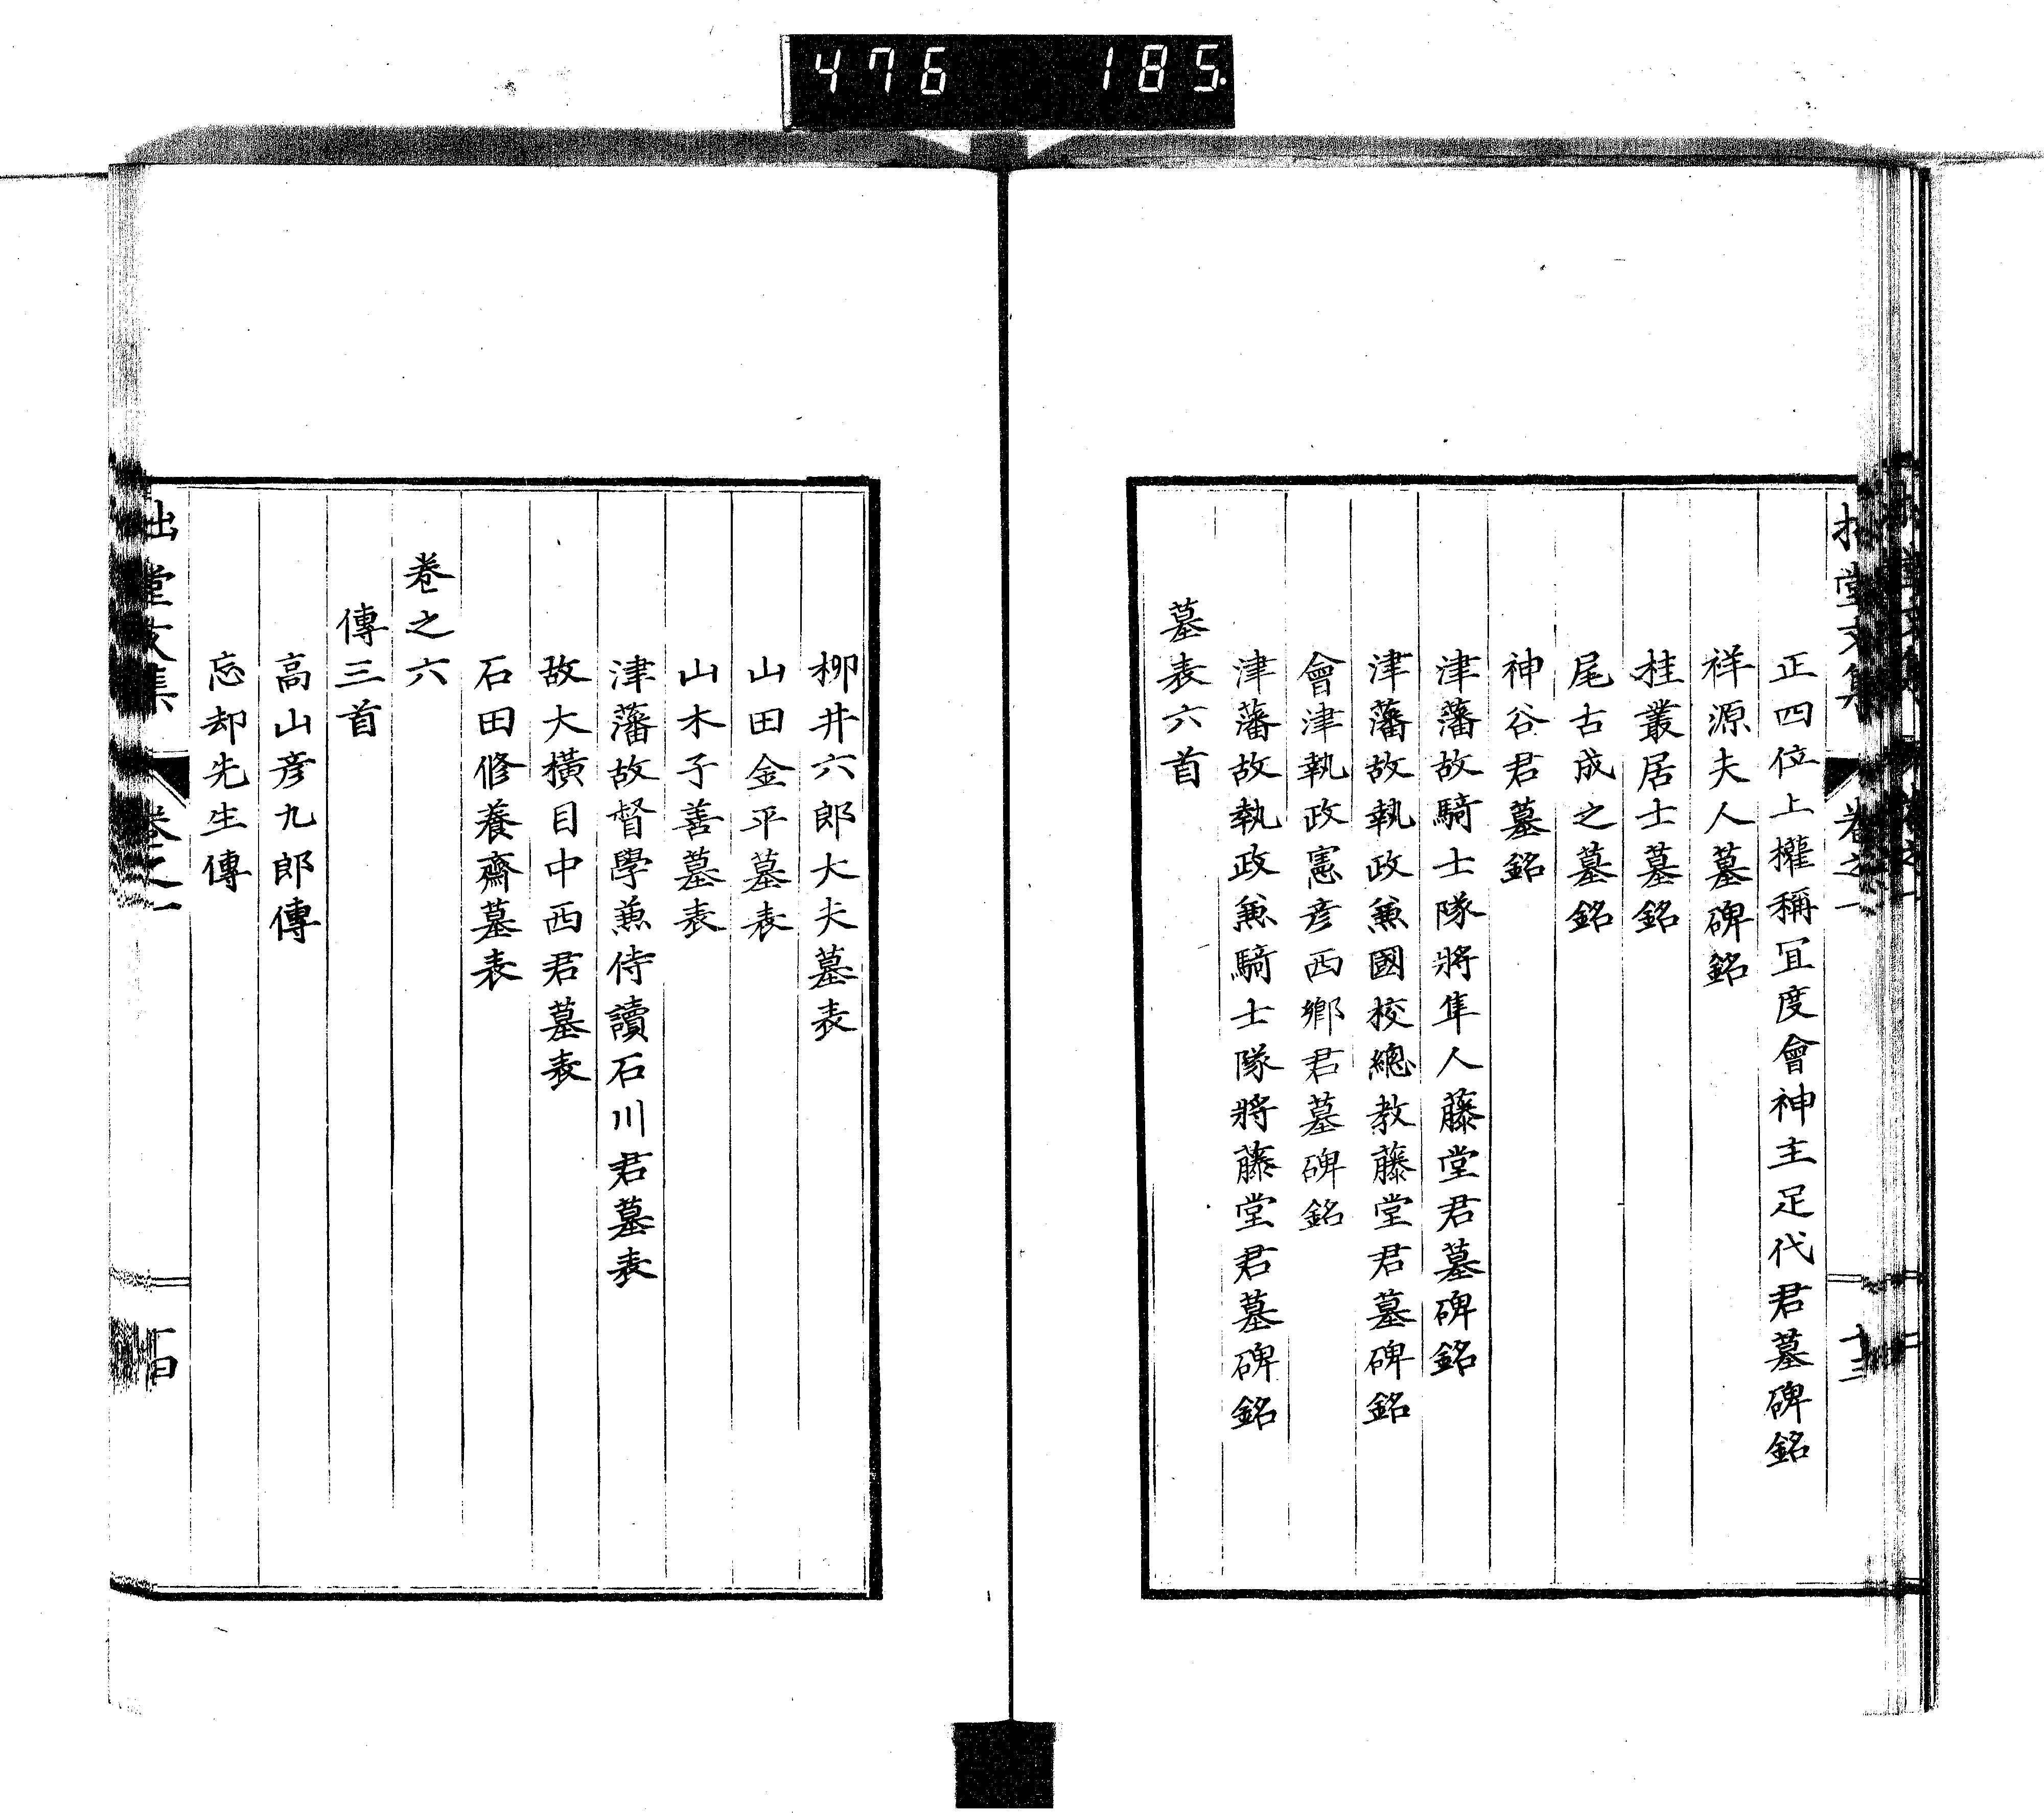 476 185.
拙堂文集 卷之一 十三
正四位上權禰宜度會神主足代君墓碑銘
祥源夫人墓碑銘
桂叢居士墓銘
尾古成之墓銘
神谷君墓銘
津藩故騎士隊將隼人藤堂君墓碑銘
津藩故執政兼國校總教藤堂君墓碑銘
會津執政憲彦西鄉君墓碑銘
津藩故執政兼騎士隊將藤堂君墓碑銘
墓表六首
柳井六郎大夫墓表
山田金平墓表
山木子善墓表
津藩故督學兼侍讀石川君墓表
故大橫目中西君墓表
石田修養齋墓表
卷之六
傳三首
高山彦九郎傳
忘却先生傳
拙堂文集 卷之一